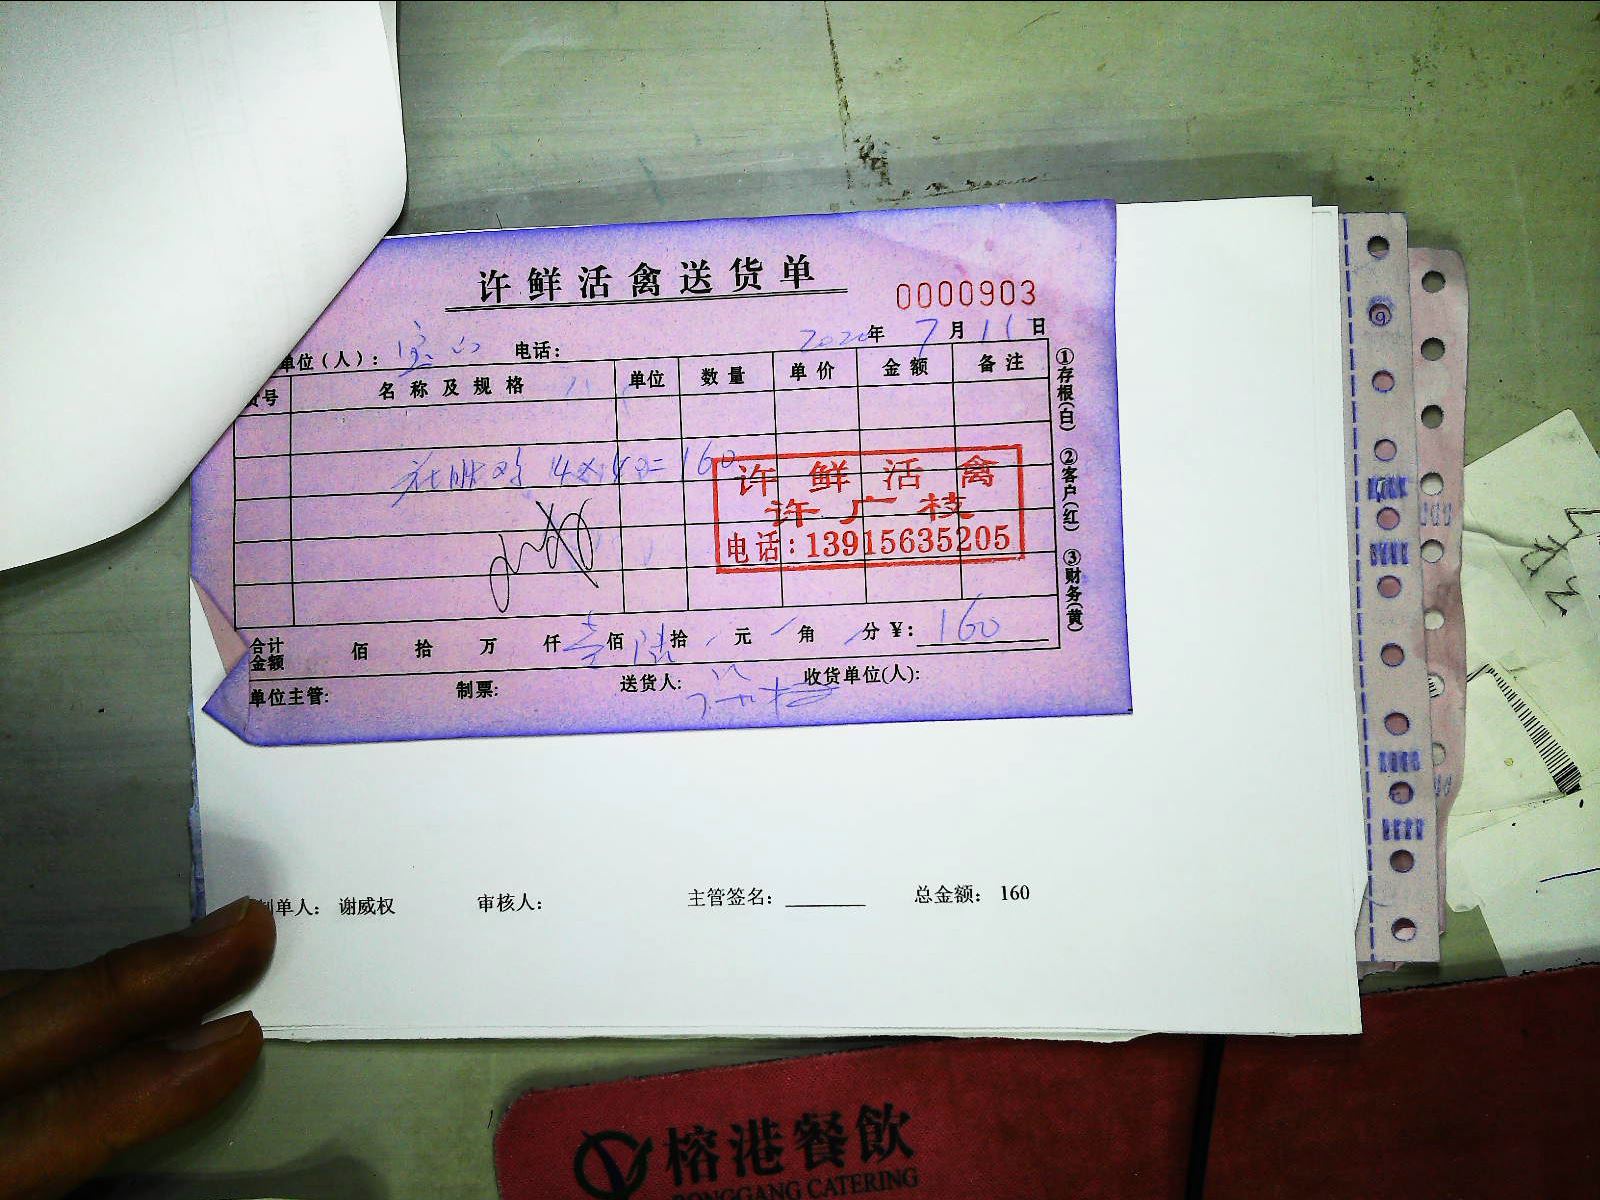 许鲜活禽送货单
0000903
单位(人): 宝山 电话: 2020年 7月 11日
货号 名称及规格 单位 数量 单价 金额 备注
160
许鲜活禽
许广枝
电话:13915635205
①存根(白) ②客户(红) ③财务(黄)
合计金额 佰 拾 万 仟 壹佰 陆拾 元 角 分 ¥: 160
单位主管: 制票: 送货人: 收货单位(人):
制单人: 谢威权 审核人: 主管签名: 总金额: 160
榕港餐飲
RONGGANG CATERING